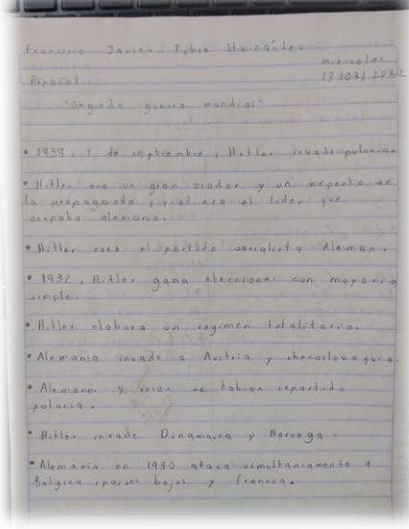 Francisco Javier Tobia Hernández
miercoles
Español 17/03/2022
"Segunda guerra mundial"
• 1939, 1 de septiembre, Hitler invade polonia
• Hitler era un gran orador y un experto en
la propaganda y el era el lider que
ocupaba alemania.
• Hitler crea el partido socialista Aleman.
• 1932, Hitler gana elecciones con mayoria
simple.
• Hitler elabora un regimen totalitario.
• Alemania invade a Austria y checoslovaquia.
• Alemanes y rusos se habian repartido
polonia.
• Hitler invade Dinamarca y Noruega.
• Alemania en 1940 ataca simultaneamente a
Belgica, paises bajos y Francia.